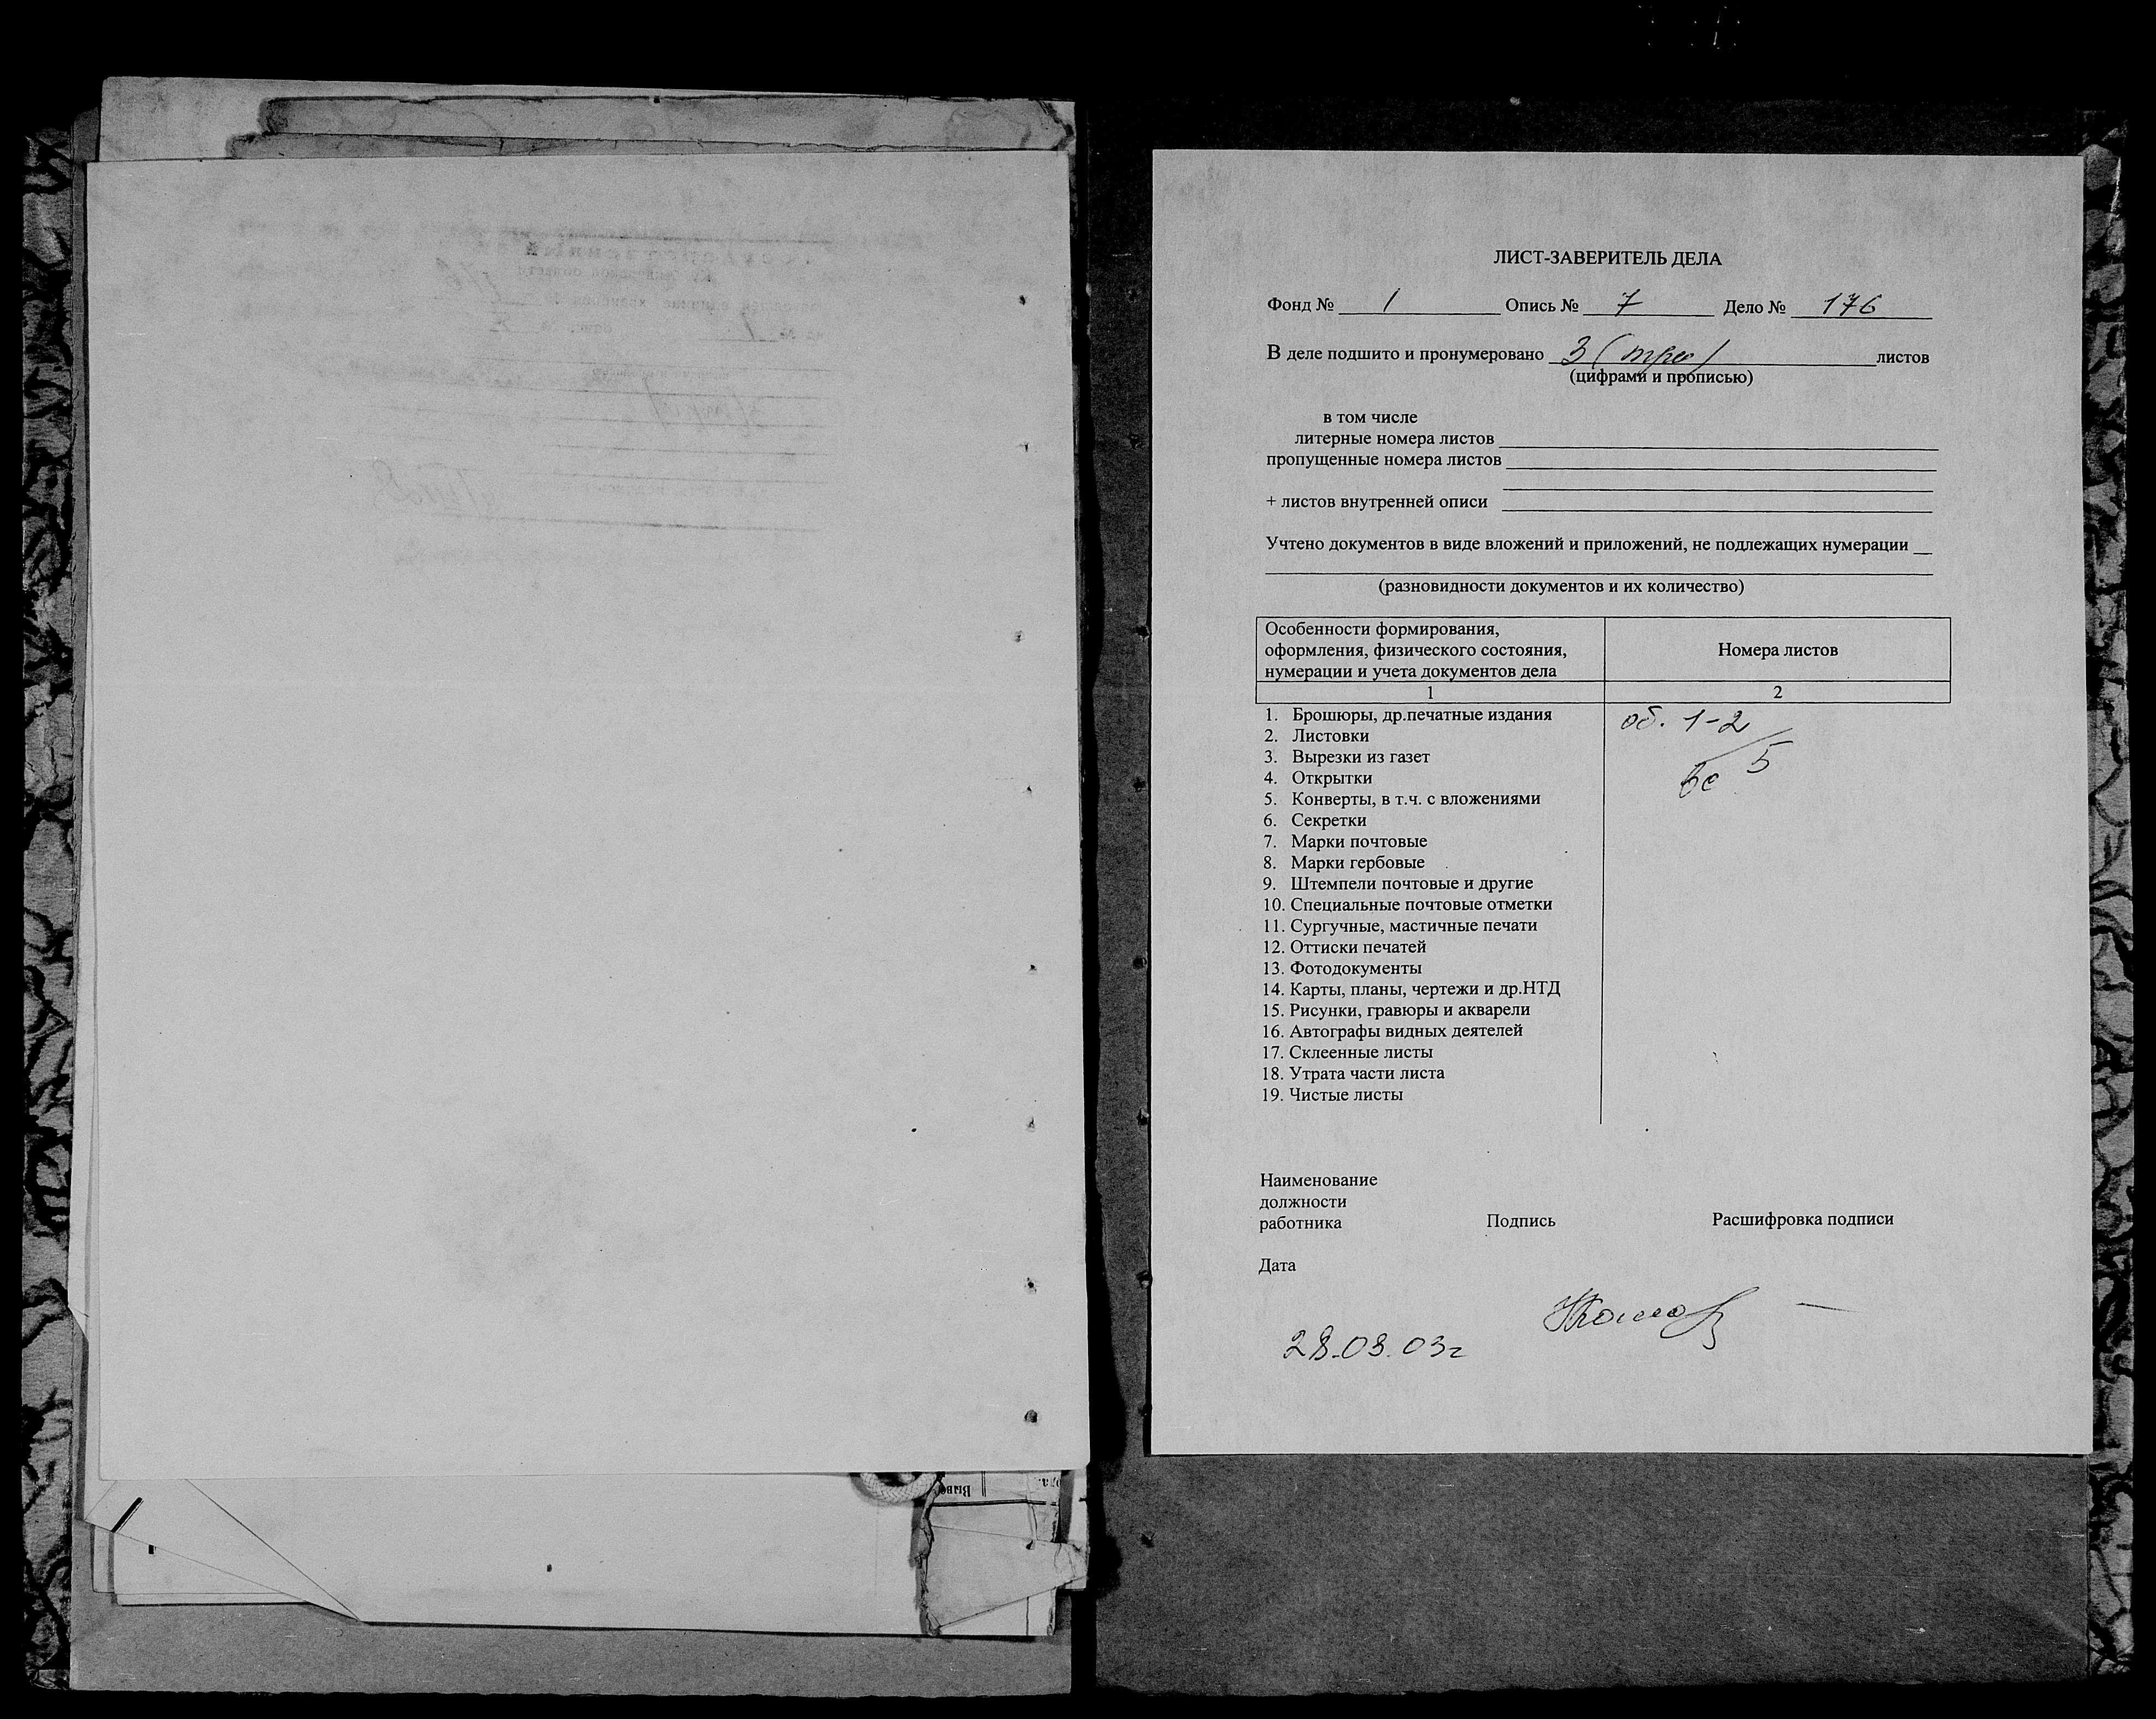 ЛИСТ-ЗАВЕРИТЕЛЬ ДЕЛА
Фонд № 1 Опись № 7 Дело № 176
В деле подшито и пронумеровано 3 (три) листов
(цифрами и прописью)
в том числе
литерные номера листов
пропущенные номера листов
+ листов внутренней описи
Учтено документов в виде вложений и приложений, не подлежащих нумерации
(разновидности документов и их количество)
Особенности формирования,
оформления, физического состояния,
нумерации и учета документов дела
Номера листов
1 2
1. Брошюры, др.печатные издания об. 1-2
2. Листовки
3. Вырезки из газет 5
4. Открытки
5. Конверты, в т.ч. с вложениями
6. Секретки
7. Марки почтовые
8. Марки гербовые
9. Штемпели почтовые и другие
10. Специальные почтовые отметки
11. Сургучные, мастичные печати
12. Оттиски печатей
13. Фотодокументы
14. Карты, планы, чертежи и др.НТД
15. Рисунки, гравюры и акварели
16. Автографы видных деятелей
17. Склеенные листы
18. Утрата части листа
19. Чистые листы
Наименование
должности
работника Подпись Расшифровка подписи
Дата
28.03.03г